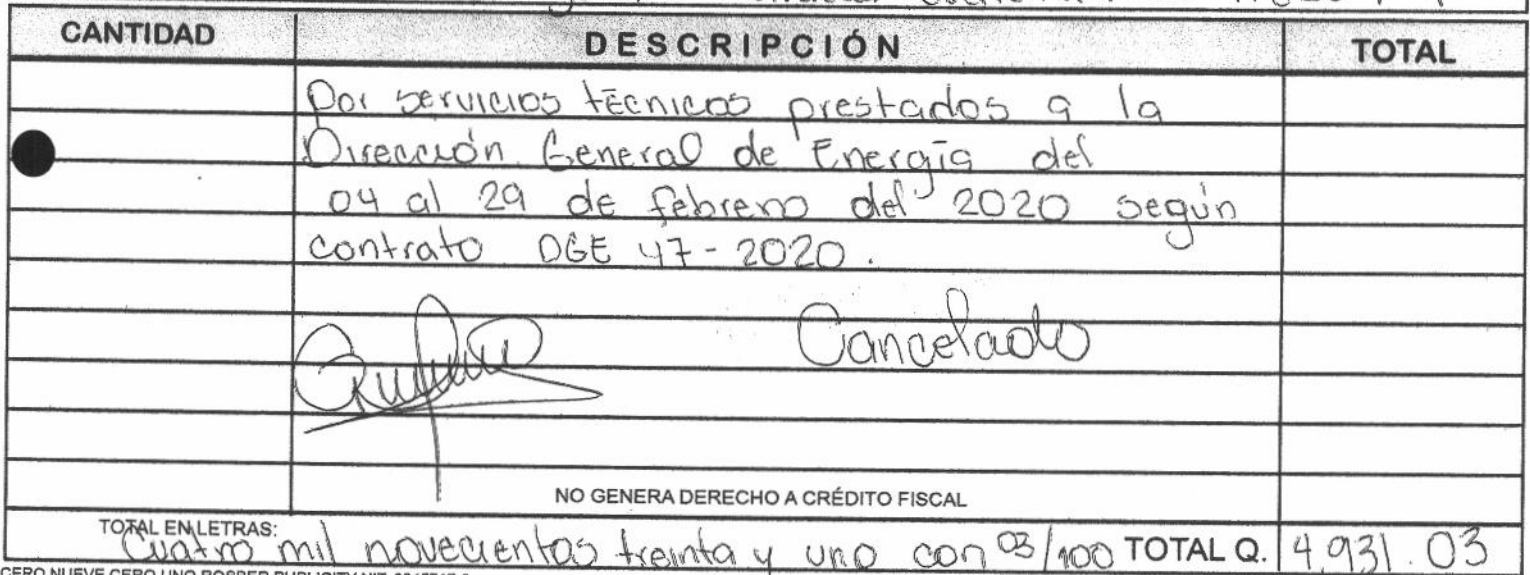 CANTIDAD DESCRIPCIÓN TOTAL
Por servicios técnicos prestados a la
Dirección General de Energía del
04 al 29 de febrero del 2020 según
contrato DGE 47-2020.
Cancelado
NO GENERA DERECHO A CRÉDITO FISCAL
TOTAL EN LETRAS: Cuatro mil novecientos treinta y uno con 03/100 TOTAL Q. 4,931.03